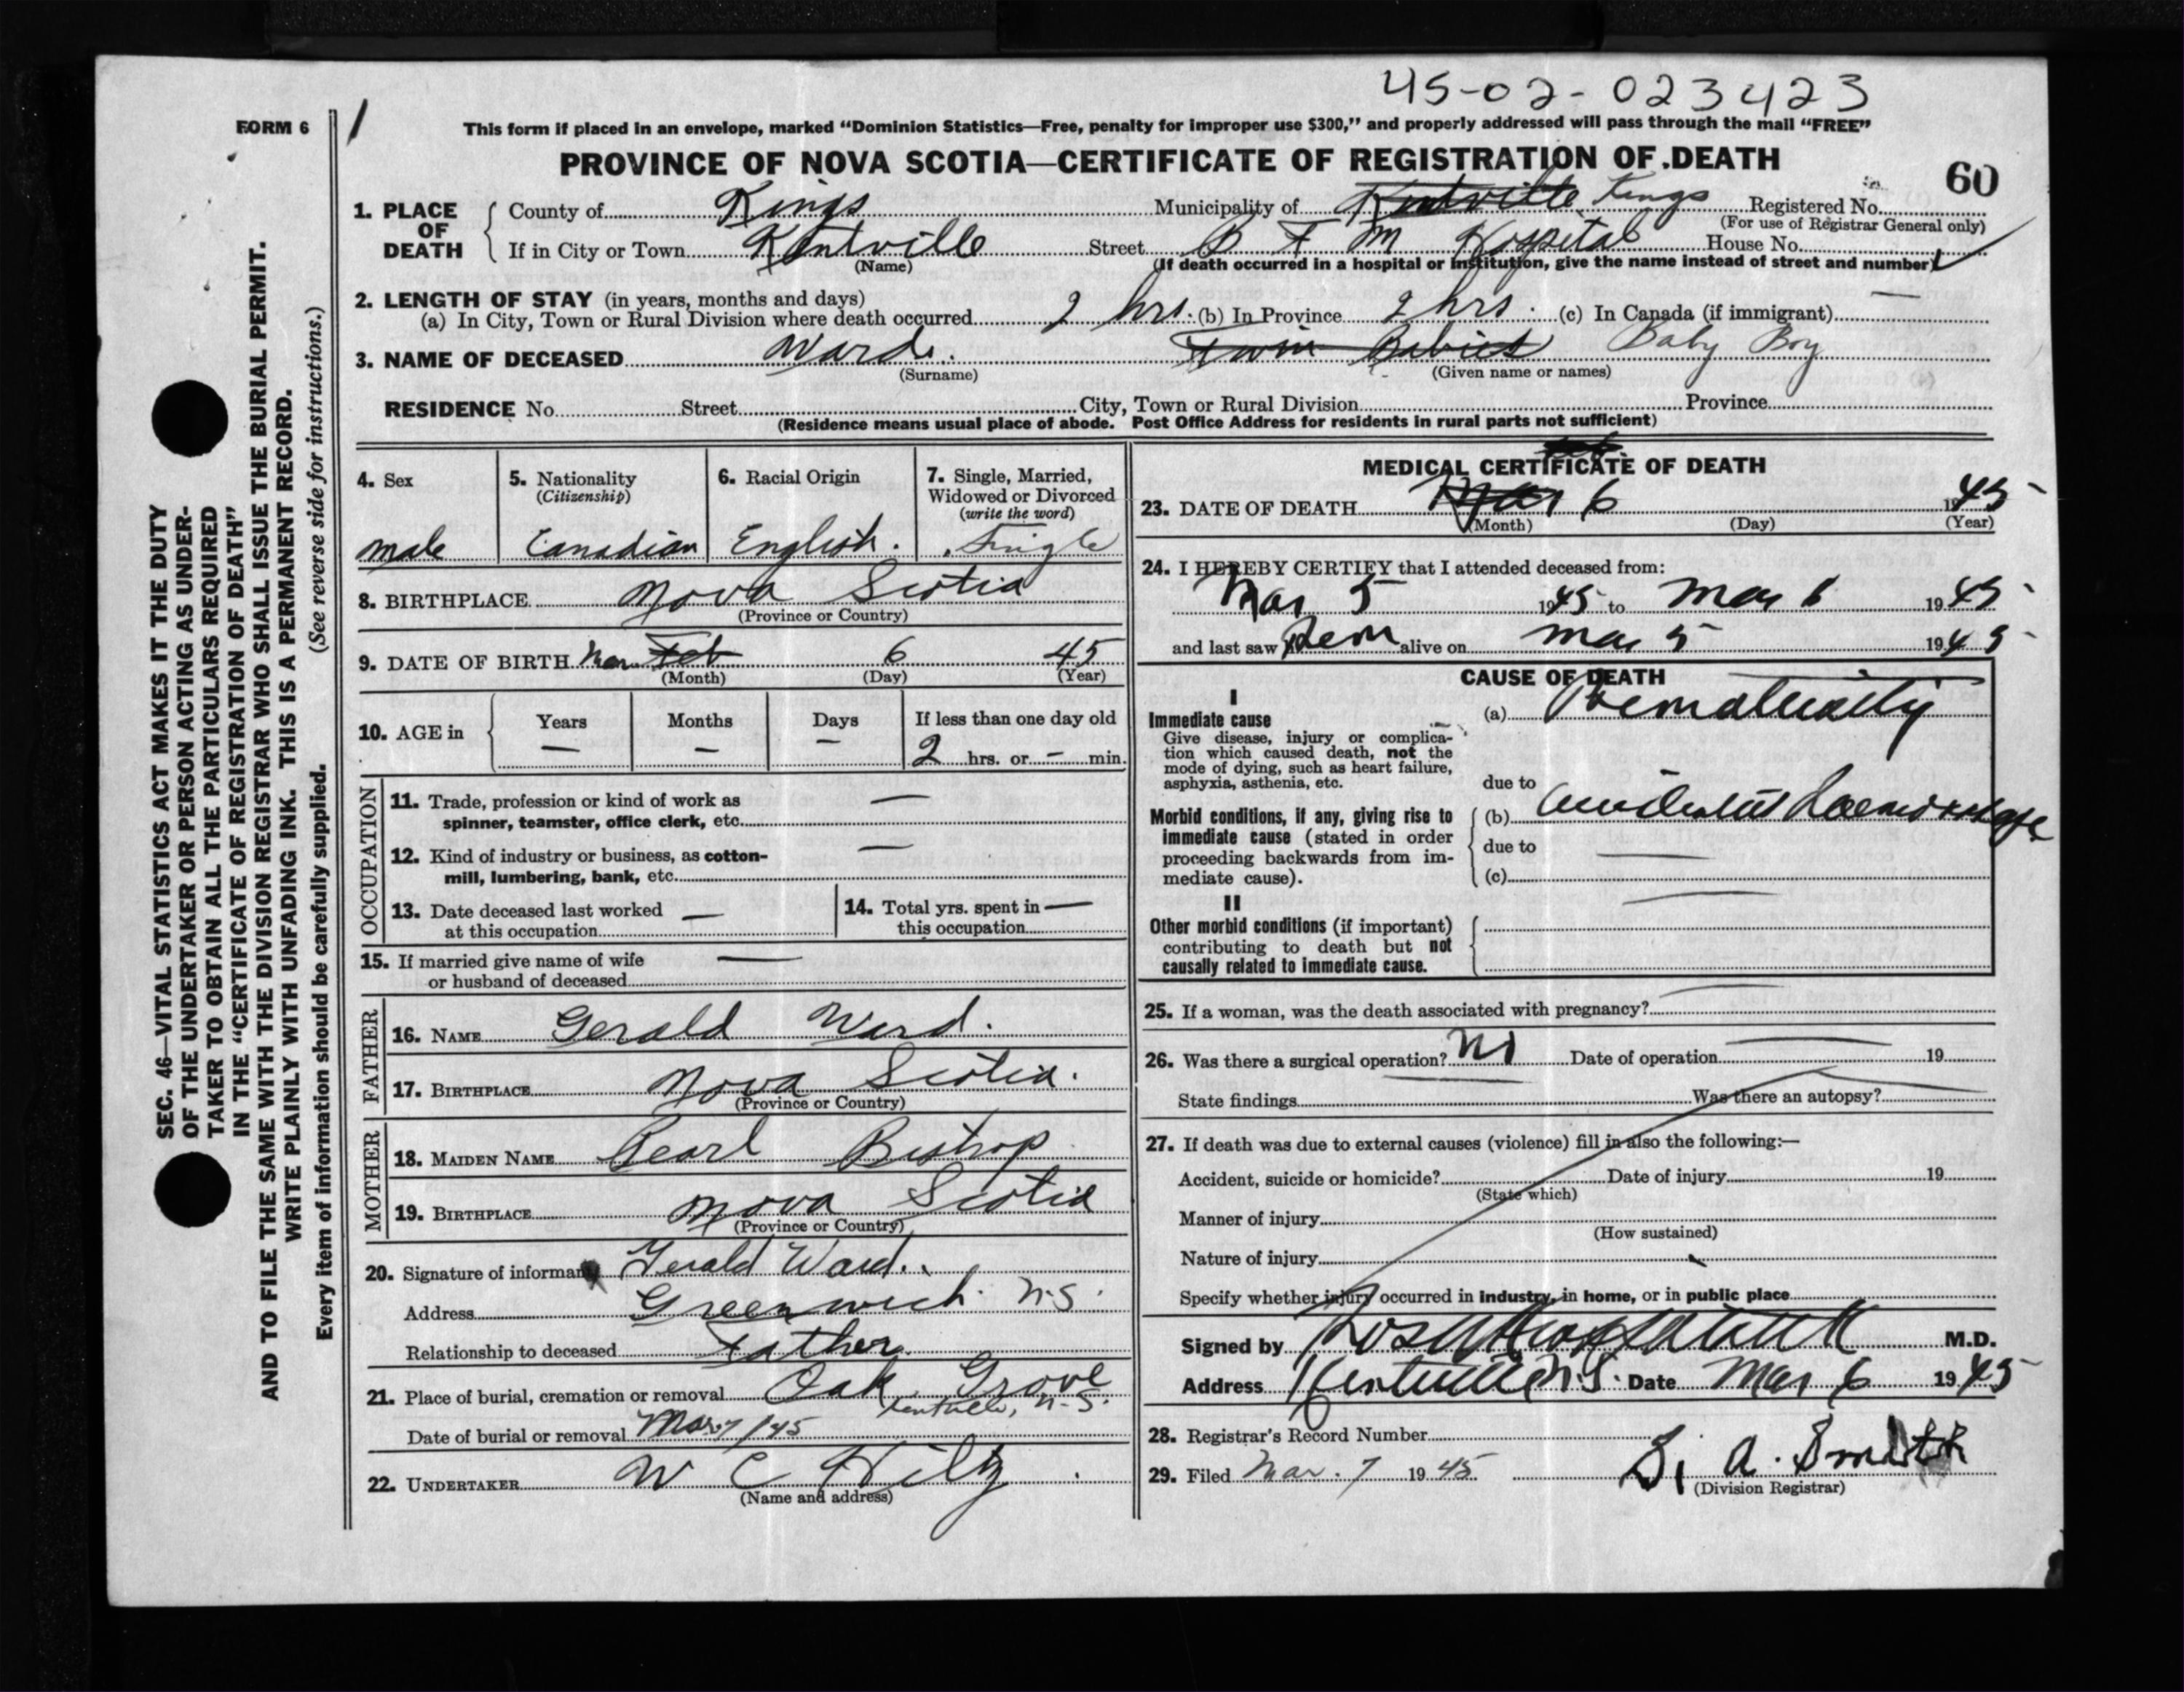 45-02-023423
FORM 6
This form if placed in an envelope, marked "Dominion Statistics—Free, penalty for improper use $300," and properly addressed will pass through the mail "FREE"
PROVINCE OF NOVA SCOTIA—CERTIFICATE OF REGISTRATION OF DEATH
60
1. PLACE OF DEATH
County of Kings Municipality of Kentville Kings Registered No.
(For use of Registrar General only)
If in City or Town Kentville Street B F M Hospital House No.
(Name) (If death occurred in a hospital or institution, give the name instead of street and number)
2. LENGTH OF STAY (in years, months and days)
(a) In City, Town or Rural Division where death occurred 2 hrs. (b) In Province 2 hrs. (c) In Canada (if immigrant) —
3. NAME OF DECEASED Ward. Twin Babies Baby Boy
(Surname) (Given name or names)
RESIDENCE No. Street City, Town or Rural Division Province
(Residence means usual place of abode. Post Office Address for residents in rural parts not sufficient)
4. Sex 5. Nationality (Citizenship) 6. Racial Origin 7. Single, Married, Widowed or Divorced (write the word)
male Canadian English. Single
8. BIRTHPLACE Nova Scotia
(Province or Country)
9. DATE OF BIRTH Mar Feb 6 45
(Month) (Day) (Year)
10. AGE in Years Months Days If less than one day old
— — — 2 hrs. or — min.
OCCUPATION
11. Trade, profession or kind of work as —
spinner, teamster, office clerk, etc.
12. Kind of industry or business, as cotton- —
mill, lumbering, bank, etc.
13. Date deceased last worked — 14. Total yrs. spent in —
at this occupation this occupation
15. If married give name of wife —
or husband of deceased
FATHER
16. NAME Gerald Ward.
17. BIRTHPLACE Nova Scotia.
(Province or Country)
MOTHER
18. MAIDEN NAME Pearl Bishop
19. BIRTHPLACE Nova Scotia
(Province or Country)
20. Signature of informant Gerald Ward.
Address Greenwich. N.S.
Relationship to deceased Father.
21. Place of burial, cremation or removal Oak Grove
Kentville, N.S.
Date of burial or removal Mar 7/45
22. UNDERTAKER W C Hiltz
(Name and address)
MEDICAL CERTIFICATE OF DEATH
23. DATE OF DEATH Mar 6 1945
(Month) (Day) (Year)
24. I HEREBY CERTIFY that I attended deceased from:
Mar 5 1945 to Mar 6 1945
and last saw alive on Mar 5 1945
CAUSE OF DEATH
I
Immediate cause (a) Prematurity
Give disease, injury or complica-
tion which caused death, not the
mode of dying, such as heart failure,
asphyxia, asthenia, etc. due to
Morbid conditions, if any, giving rise to (b) accidental haemorrhage
immediate cause (stated in order due to —
proceeding backwards from im-
mediate cause). (c) —
II
Other morbid conditions (if important)
contributing to death but not
causally related to immediate cause.
25. If a woman, was the death associated with pregnancy? —
26. Was there a surgical operation? No Date of operation — 19
State findings — Was there an autopsy? —
27. If death was due to external causes (violence) fill in also the following:—
Accident, suicide or homicide? Date of injury 19
(State which)
Manner of injury
(How sustained)
Nature of injury
Specify whether injury occurred in industry, in home, or in public place
Signed by M.D.
Address Kentville N.S. Date Mar 6 1945
28. Registrar's Record Number
29. Filed Mar. 7 1945 A. Smith
(Division Registrar)
SEC. 46—VITAL STATISTICS ACT MAKES IT THE DUTY
OF THE UNDERTAKER OR PERSON ACTING AS UNDER-
TAKER TO OBTAIN ALL THE PARTICULARS REQUIRED
IN THE "CERTIFICATE OF REGISTRATION OF DEATH"
AND TO FILE THE SAME WITH THE DIVISION REGISTRAR WHO SHALL ISSUE THE BURIAL PERMIT.
WRITE PLAINLY WITH UNFADING INK. THIS IS A PERMANENT RECORD.
Every item of information should be carefully supplied. (See reverse side for instructions.)